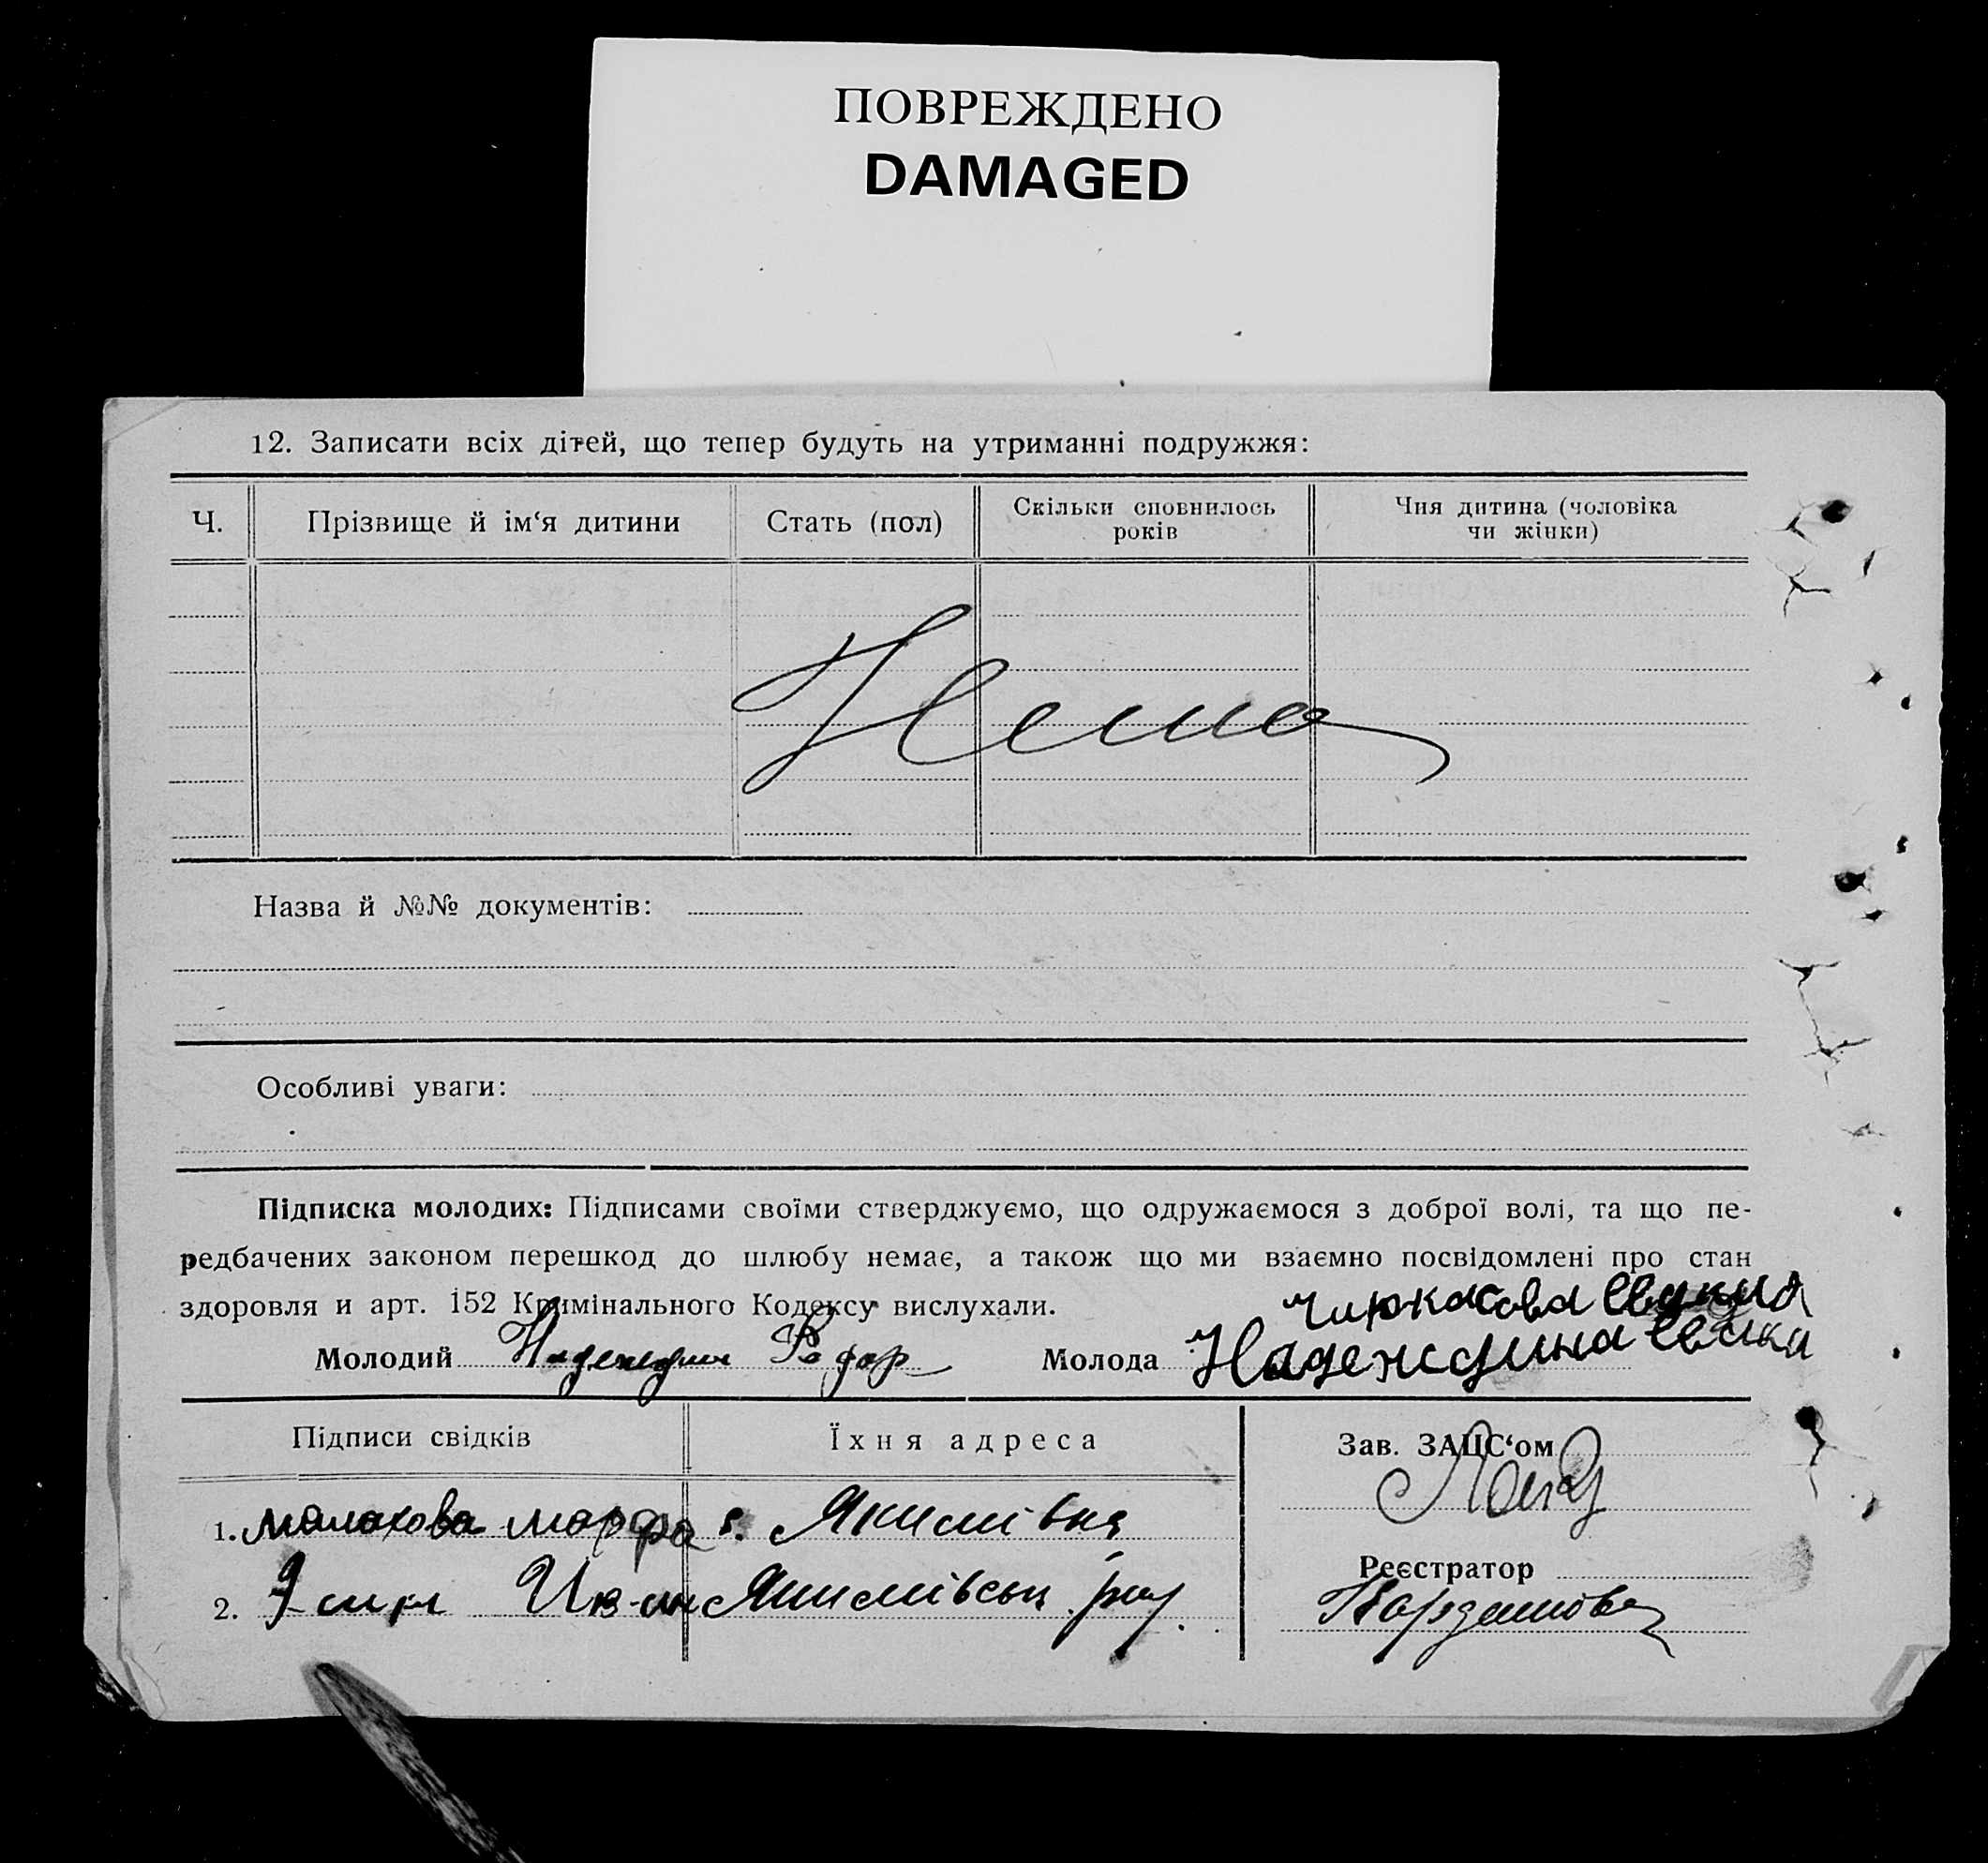 ПОВРЕЖДЕНО
DAMAGED
12. Записати всіх дітей, що тепер будуть на утриманні подружжя:
Ч. Прізвище й ім‘я дитини Стать (пол) Скільки сповнилось років Чия дитина (чоловіка чи жінки)
Нема
Назва й №№ документів:
Особливі уваги:
Підписка молодих: Підписами своїми стверджуємо, що одружаємося з доброї волі, та що пе-
редбачених законом перешкод до шлюбу немає, а також що ми взаємно посвідомлені про стан
здоровля и арт. 152 Кримінального Кодексу вислухали.
Чиркасова
Молодий Надеждин Молода Надеждина
Підписи свідків Їхня адреса Зав. ЗАЦС‘ом
1. малахова марфа с. Якимівка
Реєстратор
2. Якимівськ рай.